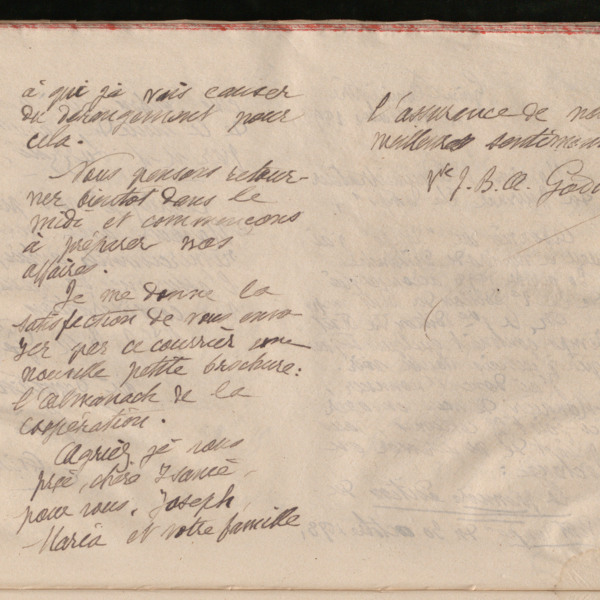 à qui je vais causer
du dérangement pour
cela.
Nous pensons retour-
ner bientot dans le
midi et commençons
à préparer nos
affaires.
Je me donne la
satisfaction de vous envo-
yer par ce courrier une
nouvelle petite brochure:
l'almanach de la
coopération.
Agréez, je vous
prie, chère
pour vous, Joseph,
Maria et votre famille
l'assurence de
meilleurs
Vve J. B. A.